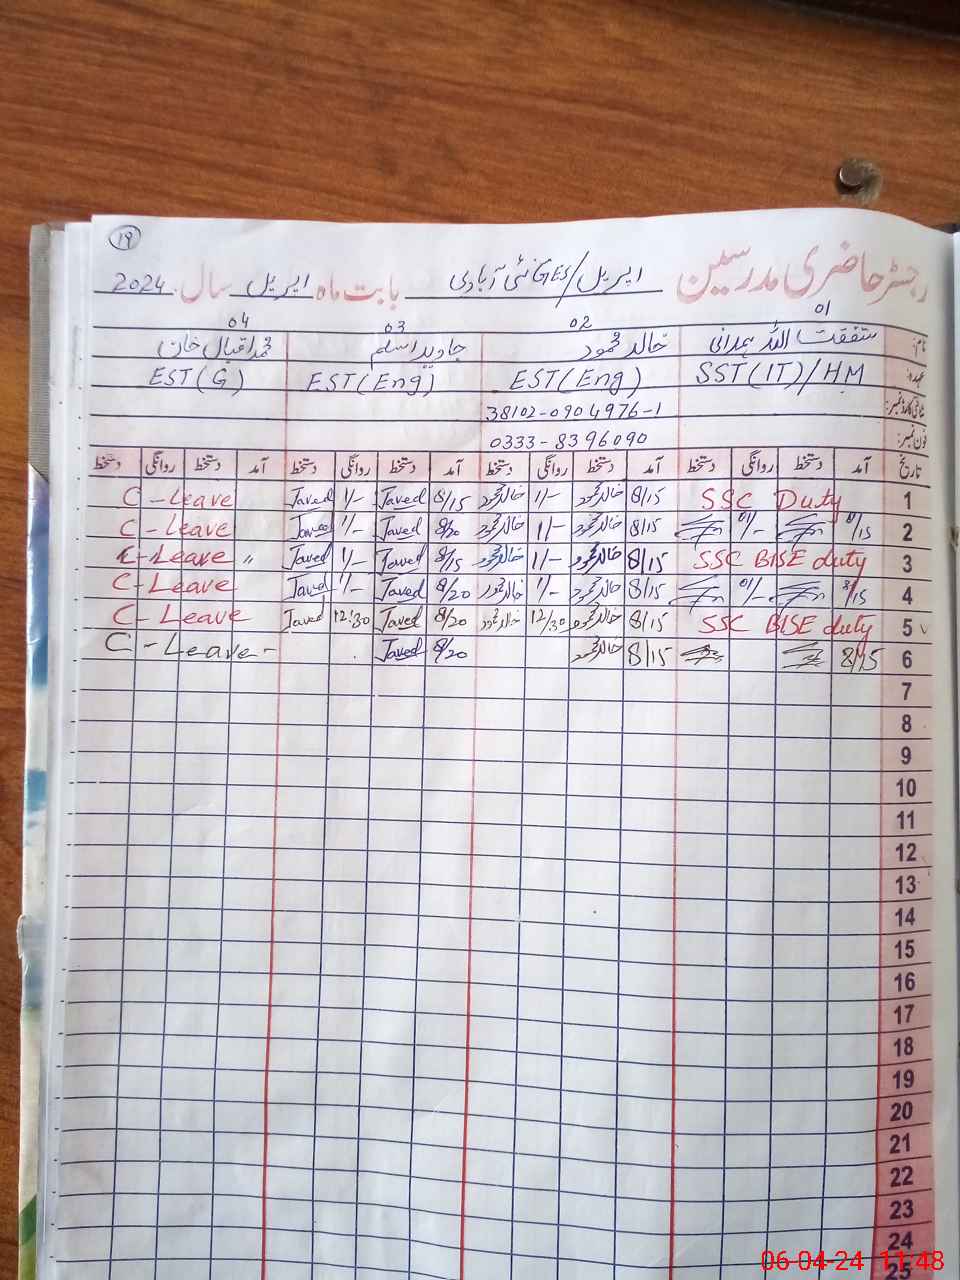 19
رجسٹر حاضری مدرسین اپریل / GES نئی آبادی بابت ماہ اپریل سال 2024
01 02 03 04
نام: شفقت اللہ ہمدانی خالد محمود جاوید اسلم محمد اقبال خان
عہدہ: SST(IT)/HM EST(Eng) EST(Eng) EST(G)
شناختی کارڈ نمبر: 38102-0904976-1
فون نمبر: 0333-8396090
تاریخ آمد دستخط روانگی دستخط آمد دستخط روانگی دستخط آمد دستخط روانگی دستخط آمد دستخط روانگی دستخط
1 SSC Duty 8/15 خالد محمود 1/- خالد محمود 8/15 Javed 1/- Javed C-Leave
2 8/15 01/- 8/15 خالد محمود 1/- خالد محمود 8/20 Javed 1/- Javed C-Leave
3 SSC BISE duty 8/15 خالد محمود 1/- خالد محمود 8/15 Javed 1/- Javed " C-Leave
4 8/15 01/- 8/15 خالد محمود 1/- خالد محمود 8/20 Javed 1/- Javed C-Leave
5 SSC BISE duty 8/15 خالد محمود 12/30 خالد محمود 8/20 Javed 12:30 Javed C-Leave
6 8/15 8/15 خالد محمود 8/20 Javed C-Leave-
7
8
9
10
11
12
13
14
15
16
17
18
19
20
21
22
23
24
25
06-04-24 11:48